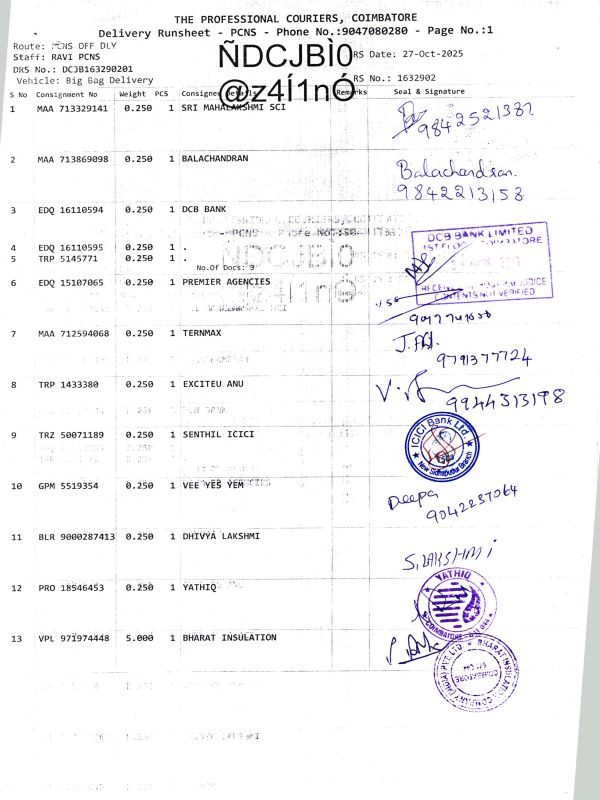 THE PROFESSIONAL COURIERS, COIMBATORE
Delivery Runsheet - PCNS - Phone No.:9047080280 - Page No.:1
Route: PCNS OFF DLY
Staff: RAVI PCNS
ÑDCJBÌ0
RS Date: 27-Oct-2025
DRS No.: DCJB163290201
Vehicle: Big Bag Delivery
@z4Í1nÓ
RS No.: 1632902
S No Consignment No Weight PCS Consignee Details Remarks Seal & Signature
1 MAA 713329141 0.250 1 SRI MAHALAKSHMI SCI
9842521387
2 MAA 713869098 0.250 1 BALACHANDRAN
Balachandran.
9842213158
3 EDQ 16110594 0.250 1 DCB BANK
DCB BANK LIMITED
4 EDQ 16110595 0.250 1 .
5 TRP 5145771 0.250 1 .
No.Of Docs: 3
CONTENTS NOT VERIFIED
6 EDQ 15107065 0.250 1 PREMIER AGENCIES
7 MAA 712594068 0.250 1 TERNMAX
9791377724
8 TRP 1433380 0.250 1 EXCITEU ANU
9944313198
9 TRZ 50071189 0.250 1 SENTHIL ICICI
ICICI Bank Ltd.
New Sidhapudur Branch
10 GPM 5519354 0.250 1 VEE YES YEM
Deepa
9042237064
11 BLR 9000287413 0.250 1 DHIVYA LAKSHMI
S.LAKSHMI
12 PRO 18546453 0.250 1 YATHIQ
YATHIQ
13 VPL 971974448 5.000 1 BHARAT INSULATION
BHARAT INSULATION COMPANY (INDIA) PVT. LTD
COIMBATORE